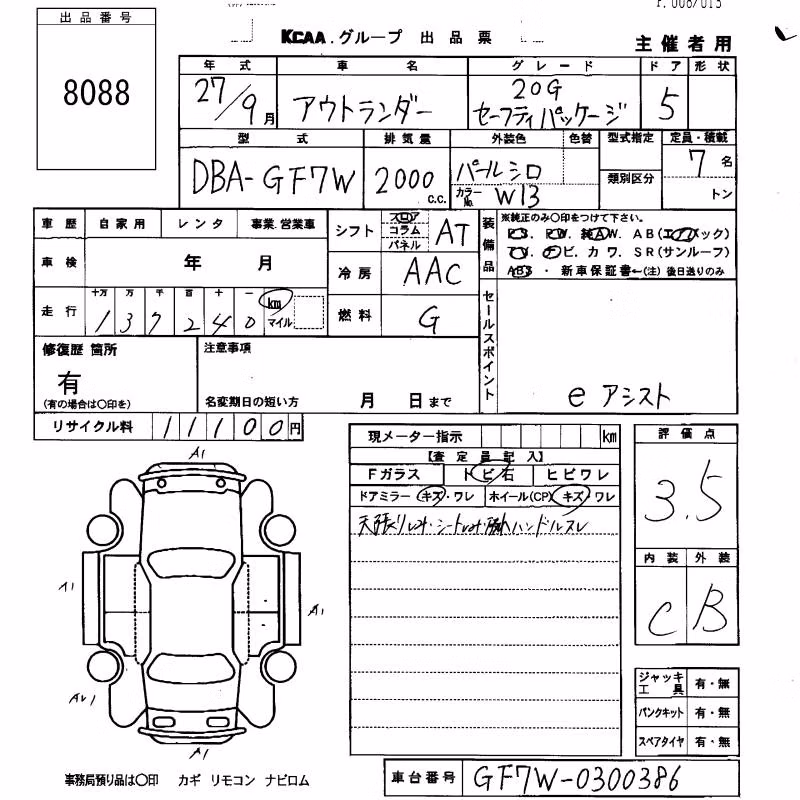 出品番号
8088
KCAA.グループ 出品票
P.008/013
主催者用
年式 車名 グレード ドア 形状
27/9月 アウトランダー 20G セーフティパッケージ 5
型式 排気量 外装色 色替 型式指定 定員・積載
DBA-GF7W 2000 C.C. パールシロ 類別区分 7名
カラーNo. W13 トン
車歴 自家用 レンタ 事業.営業車
シフト フロア コラム パネル AT
装備品 ※純正のみ○印をつけて下さい。
PS. PW. 純AW. AB(エアバック)
TV. ナビ. カワ. SR(サンルーフ)
ABS ・ 新車保証書←(注) 後日送りのみ
車検 年 月
冷房 AAC
走行 十万 万 千 百 十 一
1 3 7 2 4 0 km マイル
燃料 G
セールスポイント
e アシスト
修復歴 箇所
有
(有の場合は○印を)
注意事項
名変期日の短い方 月 日まで
リサイクル料 11100円
現メーター指示 km
【査定員記入】
Fガラス トビ石 ヒビワレ
ドアミラー キズ・ワレ ホイール(CP) キズ・ワレ
ハンドルスレ
評価点
3.5
内装 外装
C B
A1
A1
A1
A1
ジャッキ工具 有・無
パンクキット 有・無
スペアタイヤ 有・無
事務局預り品は○印 カギ リモコン ナビロム
車台番号 GF7W-0300386